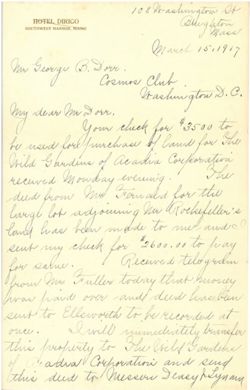 HOTEL DIRIGO
SOUTHWEST HARBOR, MAINE
108 Washington St
Brighton
Mass
March 15, 1917
Mr George B. Dorr.
Cosmos Club
Washington D.C.
My dear Mr Dorr.
Your check for $3500 to
be used for purchase of land for The
Wild Gardens of Acadia Corporation
received Monday evening. The
deed from Mr Fernald for the
large lot adjoining Mr Rockefeller's
land has been made to me and I
sent my check for $2600.00 to pay
for same. Received telegram
from Mr Fuller today that money
was paid over and deed has been
sent to Ellsworth to be recorded at
once. I will immediately transfer
this property to The Wild Gardens
of Acadia Corporation and send
this deed to Messers Deasy & Lynam